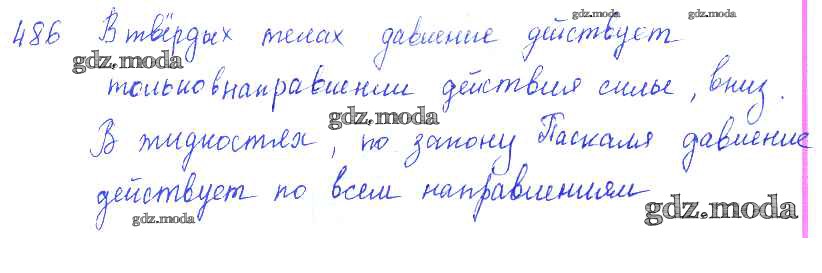 486 В твёрдых телах давление действует
только в направлении действия силы, вниз.
В жидкостях, по закону Паскаля давление
действует по всем направлениям
gdz.moda
gdz.moda
gdz.moda
gdz.moda
gdz.moda
gdz.moda